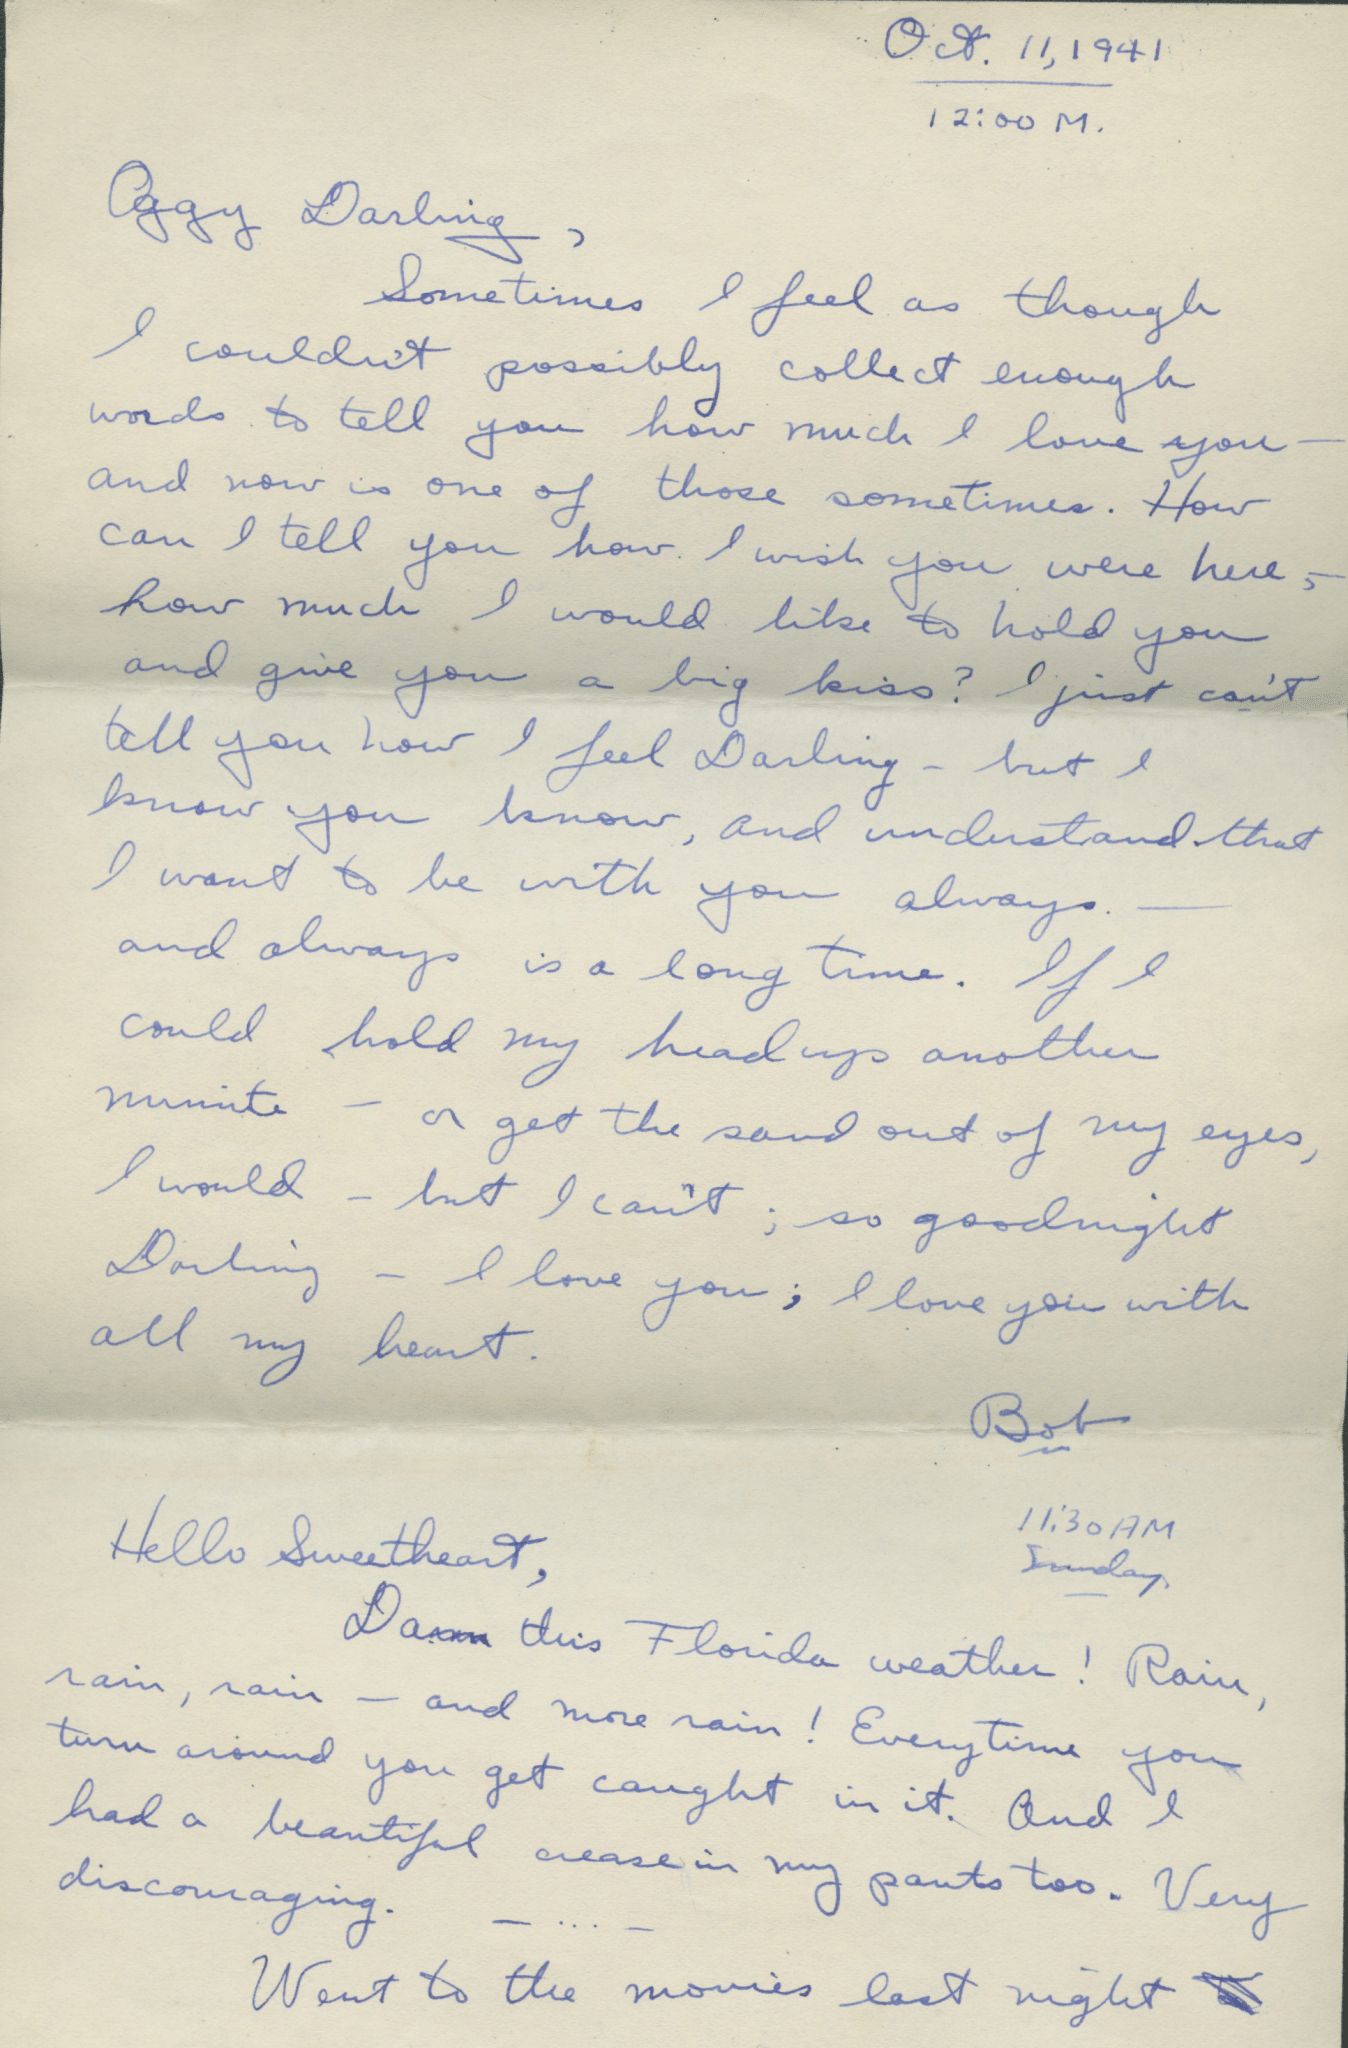 Oct. 11, 1941
12:00 M.
Peggy Darling,
Sometimes I feel as though
I couldn't possibly collect enough
words to tell you how much I love you —
and now is one of those sometimes. How
can I tell you how I wish you were here, —
how much I would like to hold you
and give you a big kiss? I just can't
tell you how I feel Darling — but I
know you know, and understand that
I want to be with you always. —
and always is a long time. If I
could hold my head up another
minute — or get the sand out of my eyes,
I would — but I can't; so goodnight
Darling — I love you; I love you with
all my heart.
Bob
11:30 AM
Sunday
Hello Sweetheart,
Damn this Florida weather! Rain,
rain, rain — and more rain! Everytime you
turn around you get caught in it. And I
had a beautiful crease in my pants too. Very
discouraging. — ... —
Went to the movies last night